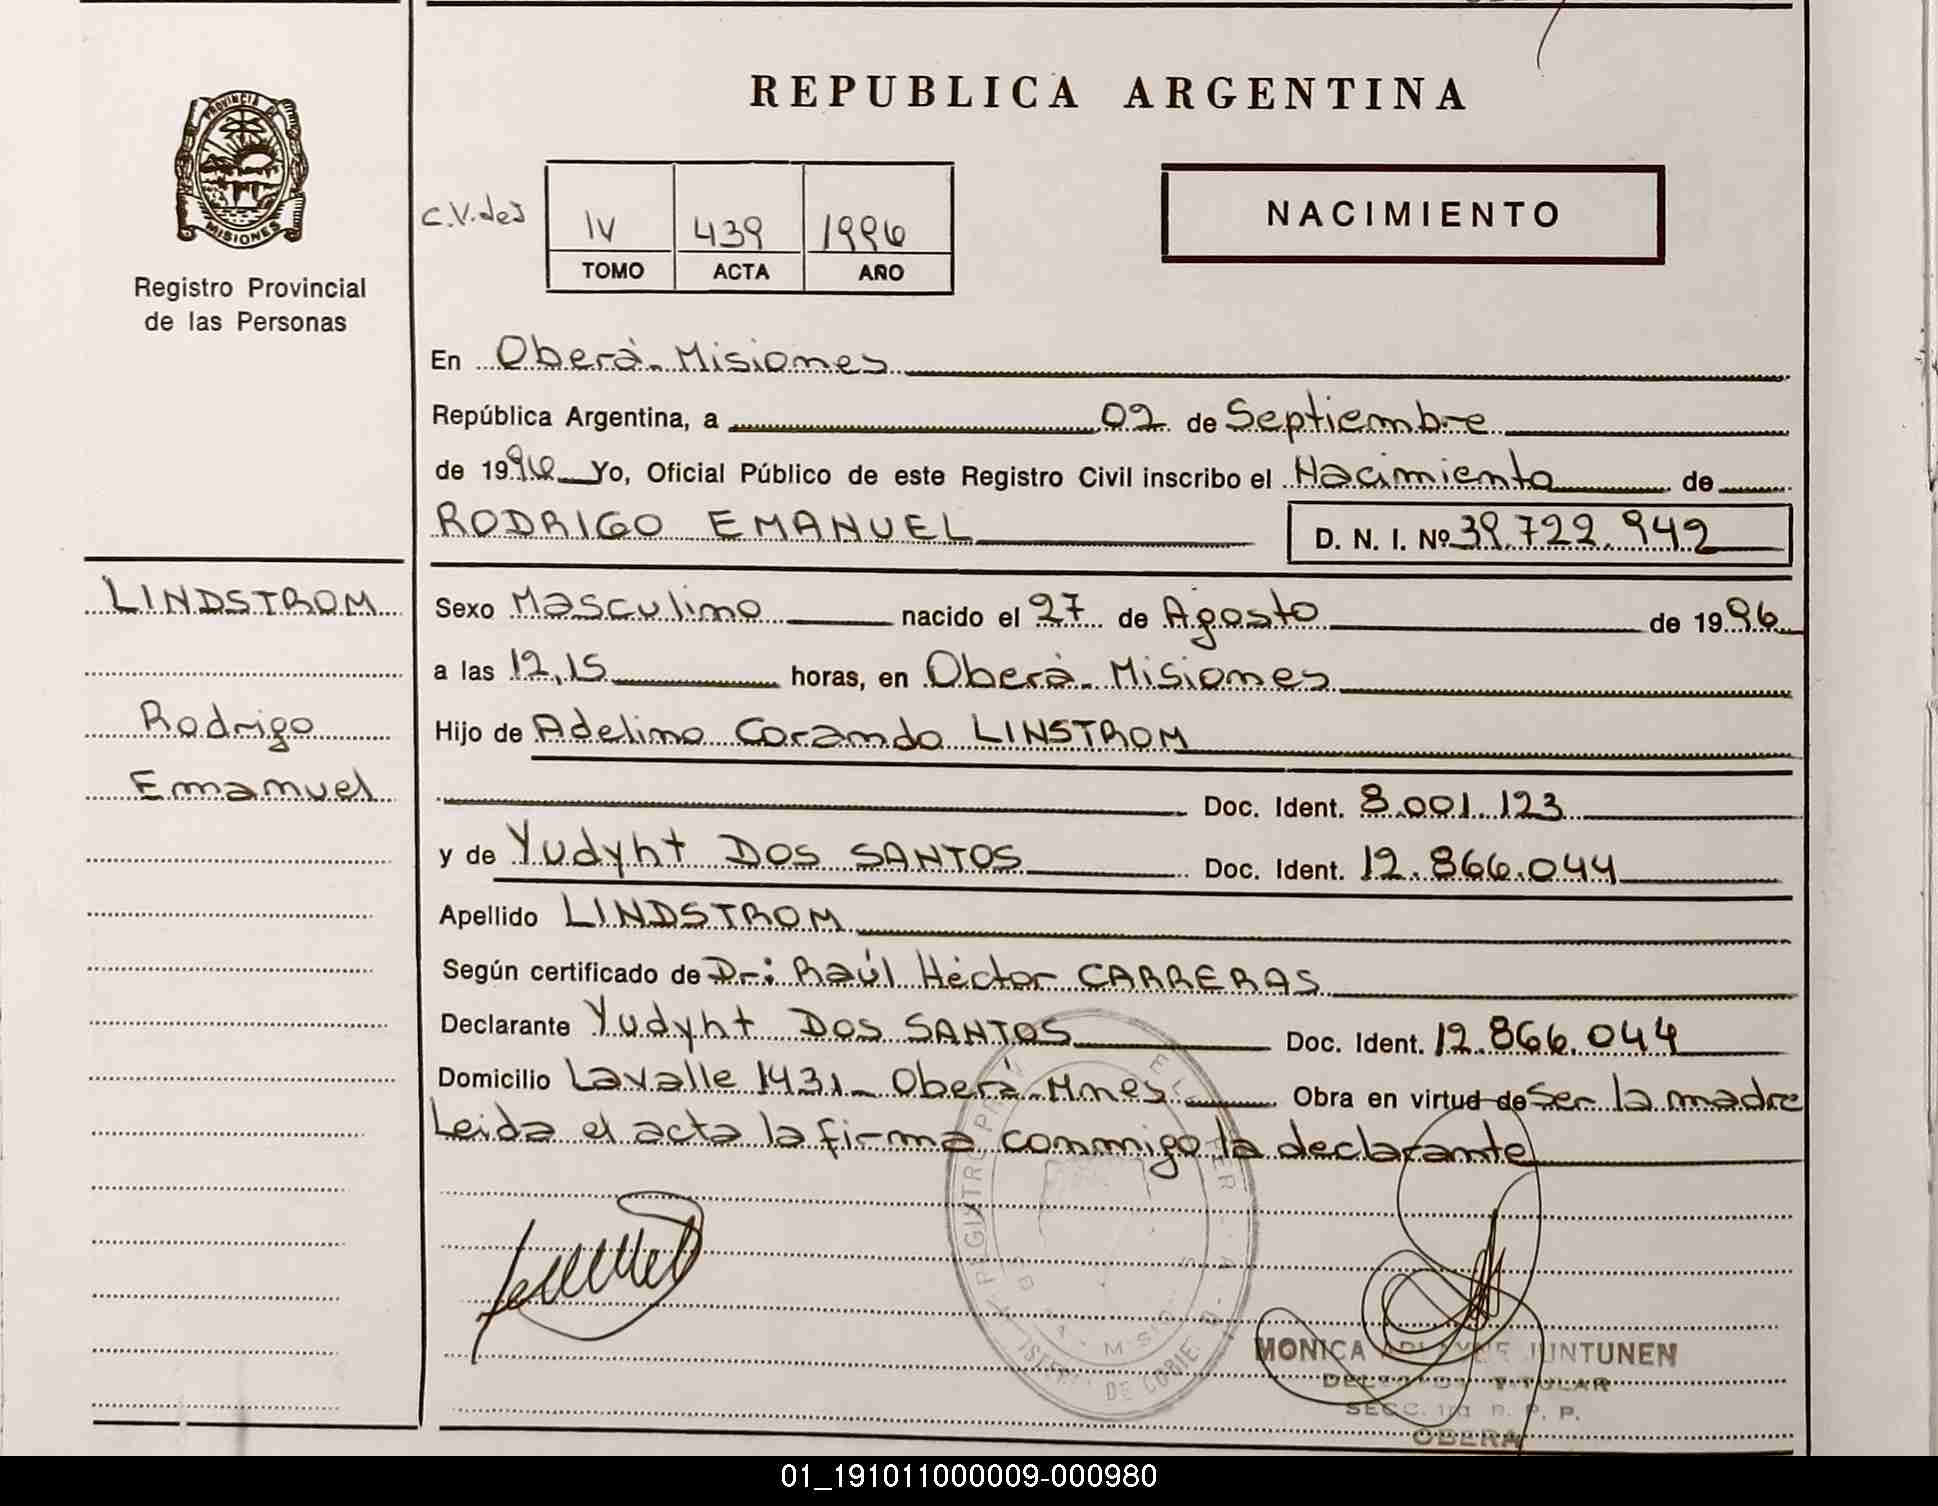 REPUBLICA ARGENTINA
PROVINCIA DE
MISIONES
Registro Provincial
de las Personas
C.V.des
IV 439 1996
TOMO ACTA AÑO
NACIMIENTO
En Oberá - Misiones
República Argentina, a 02 de Septiembre
de 1996 Yo, Oficial Público de este Registro Civil inscribo el Nacimiento de
RODRIGO EMANUEL D. N. I. Nº 39.722.942
LINDSTROM
Rodrigo
Emanuel
Sexo Masculino nacido el 27 de Agosto de 1996
a las 12,15 horas, en Oberá - Misiones
Hijo de Adelino Corando LINSTROM
Doc. Ident. 8.001.123
y de Yudyht DOS SANTOS Doc. Ident. 12.866.044
Apellido LINDSTROM
Según certificado de Dr: Raúl Héctor CARRERAS
Declarante Yudyht DOS SANTOS Doc. Ident. 12.866.044
Domicilio Lavalle 1431 - Oberá - Mnes Obra en virtud de Ser la madre
Leida el acta la firma conmigo la declarante
MONICA JUNTUNEN
TITULAR
SECC. R. P. P.
OBERA
01_191011000009-000980